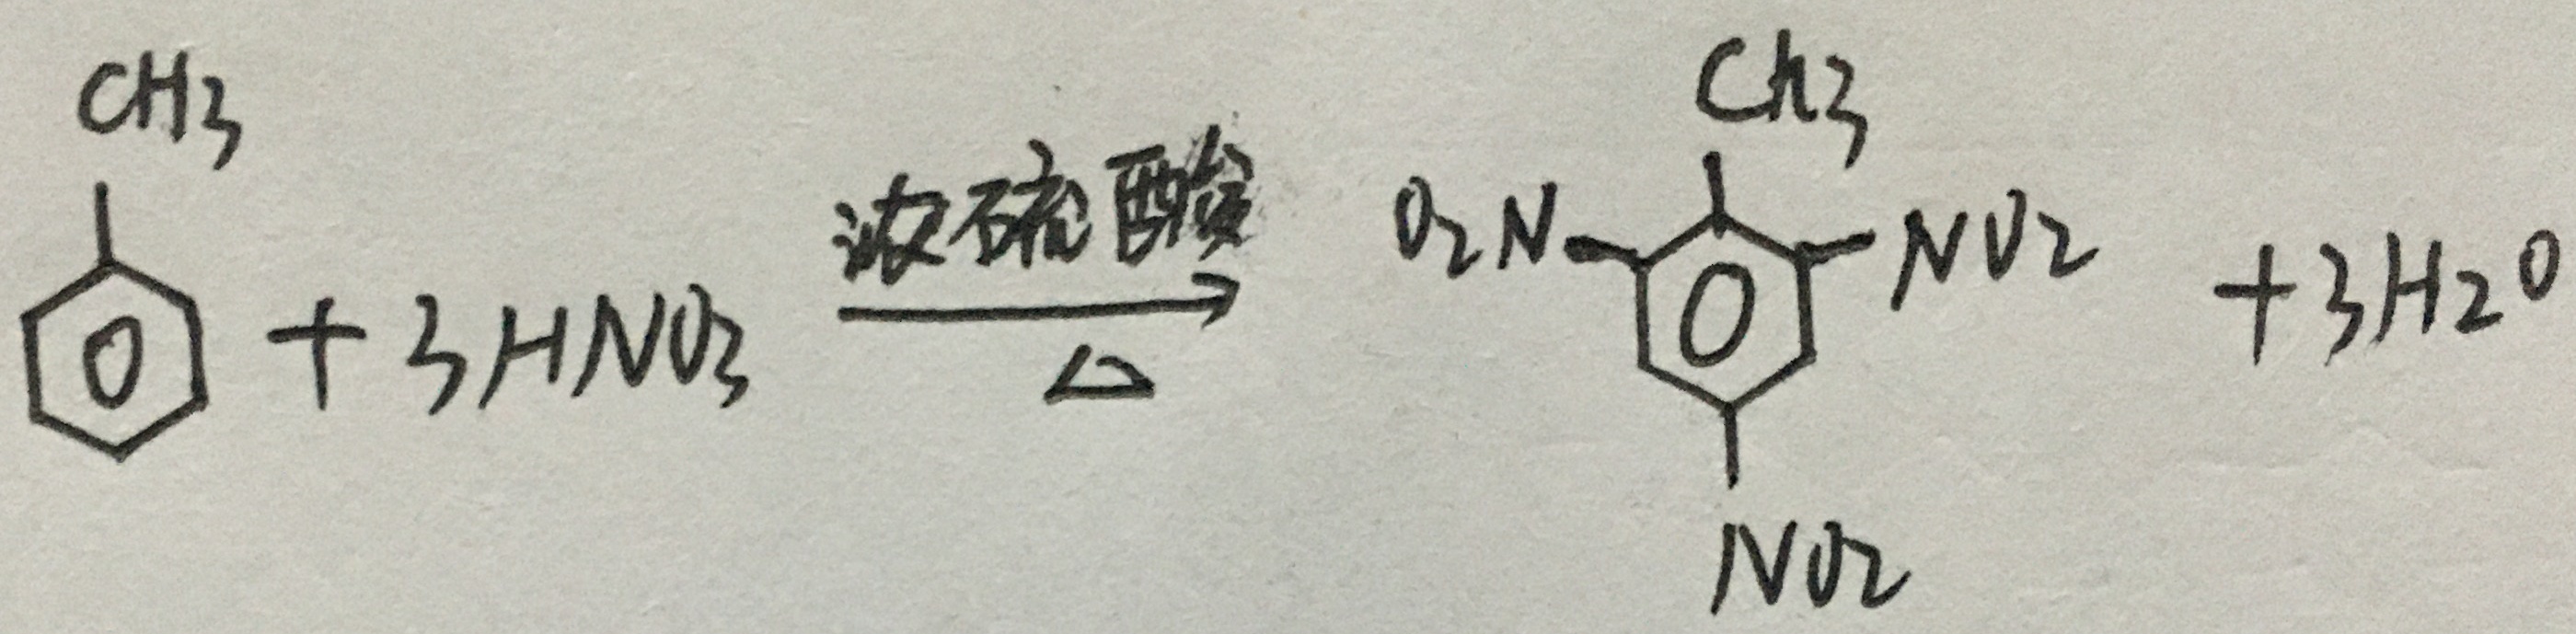 CH3
+ 3HNO3
浓硫酸
△
CH3
O2N
NO2
NO2
+ 3H2O